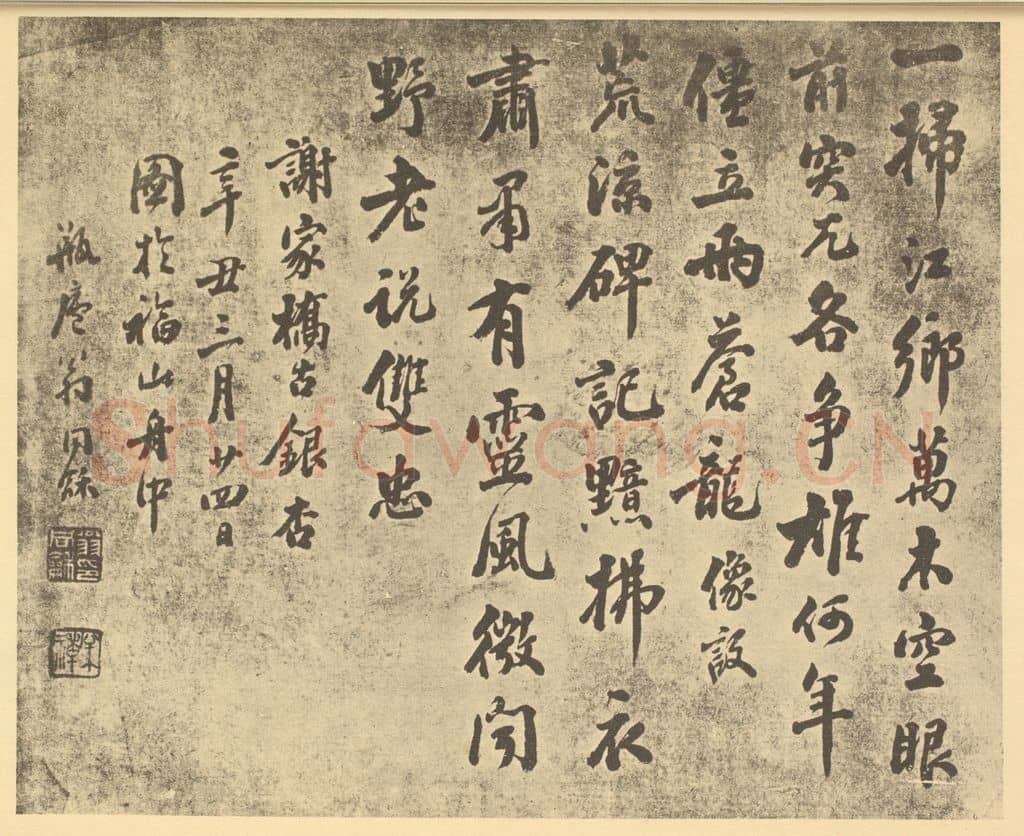 一掃江鄉萬木空眼
前突兀各爭雄何年
僵立兩蒼龍像設
荒涼碑記黯拂衣
肅肅有靈風微聞
野老說雙忠
謝家橋古銀杏
辛丑三月廿四日
圖於福山舟中
瓶廬翁同龢
Shufawang.CN